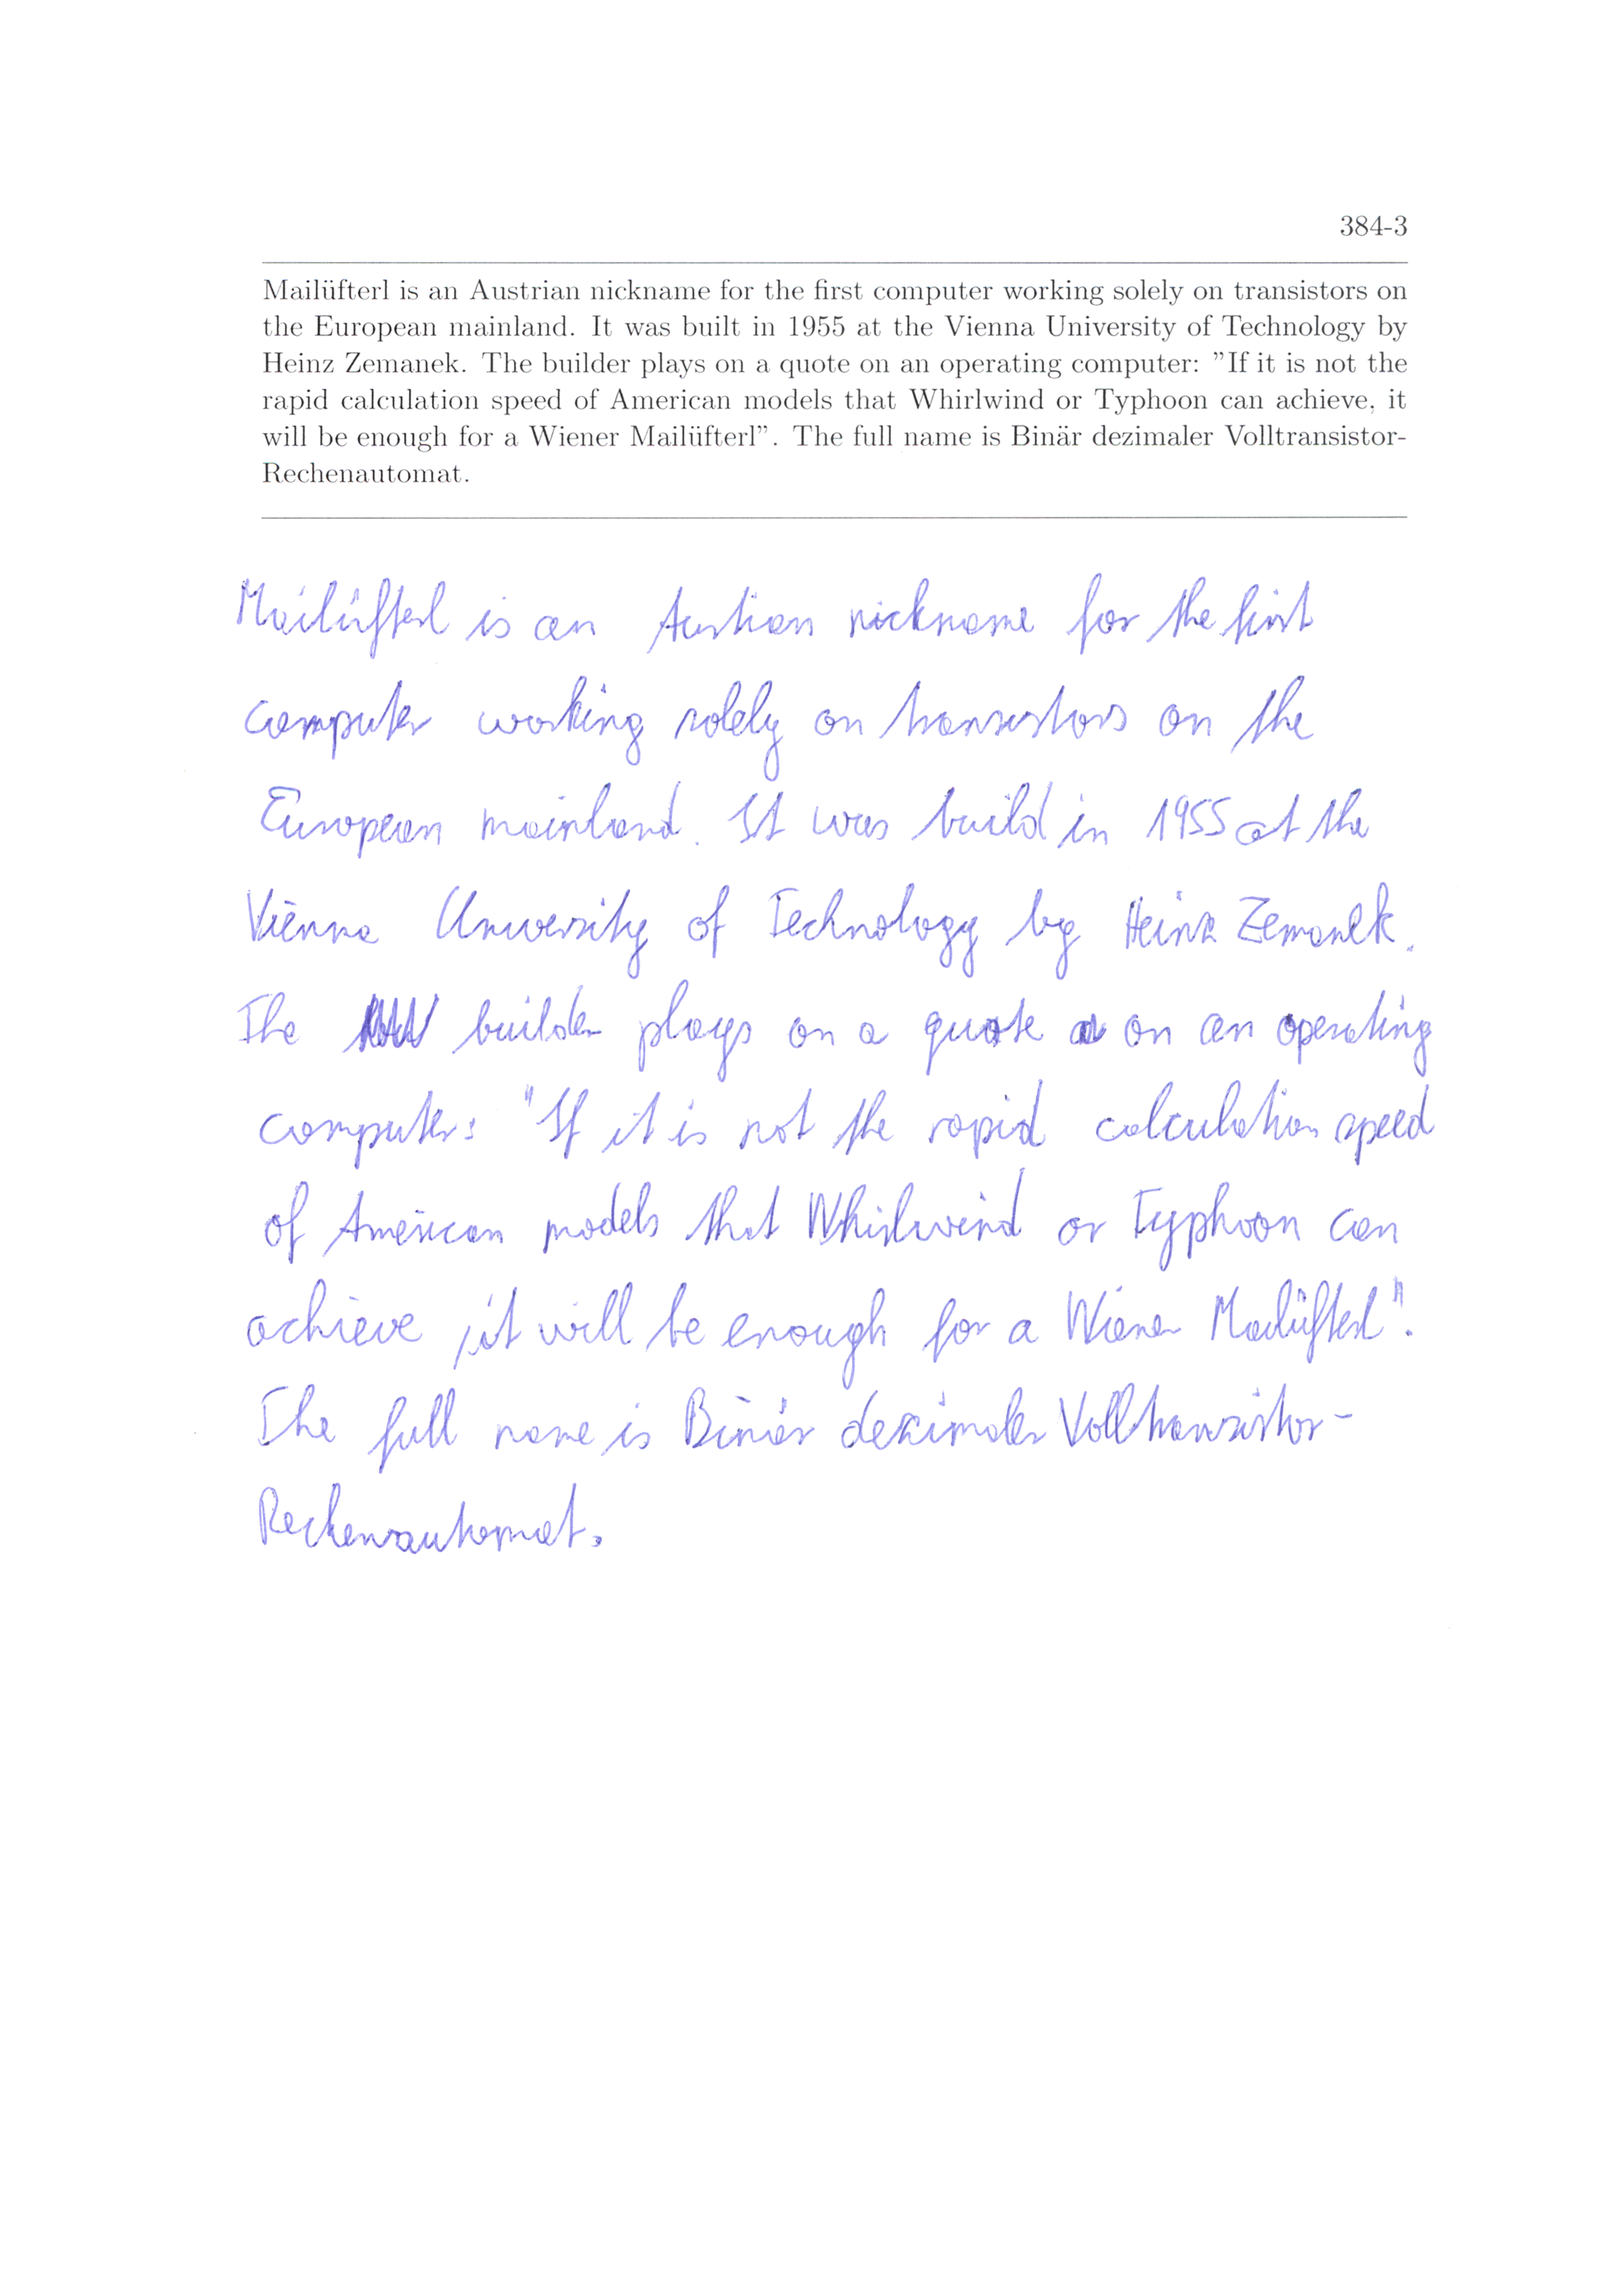 384-3
Mailüfterl is an Austrian nickname for the first computer working solely on transistors on
the European mainland. It was built in 1955 at the Vienna University of Technology by
Heinz Zemanek. The builder plays on a quote on an operating computer: "If it is not the
rapid calculation speed of American models that Whirlwind or Typhoon can achieve, it
will be enough for a Wiener Mailüfterl". The full name is Binär dezimaler Volltransistor-
Rechenautomat.
Mailüfterl is an Austrian nickname for the first
computer working solely on transistors on the
European mainland. It was build in 1955 at the
Vienna University of Technology by Heinz Zemanek.
The builder plays on a quote on an operating
computer: "If it is not the rapid calculation speed
of American models that Whirlwind or Typhoon can
achieve, it will be enough for a Wiener Mailüfterl".
The full name is Binär dezimaler Volltransistor-
Rechenautomat.